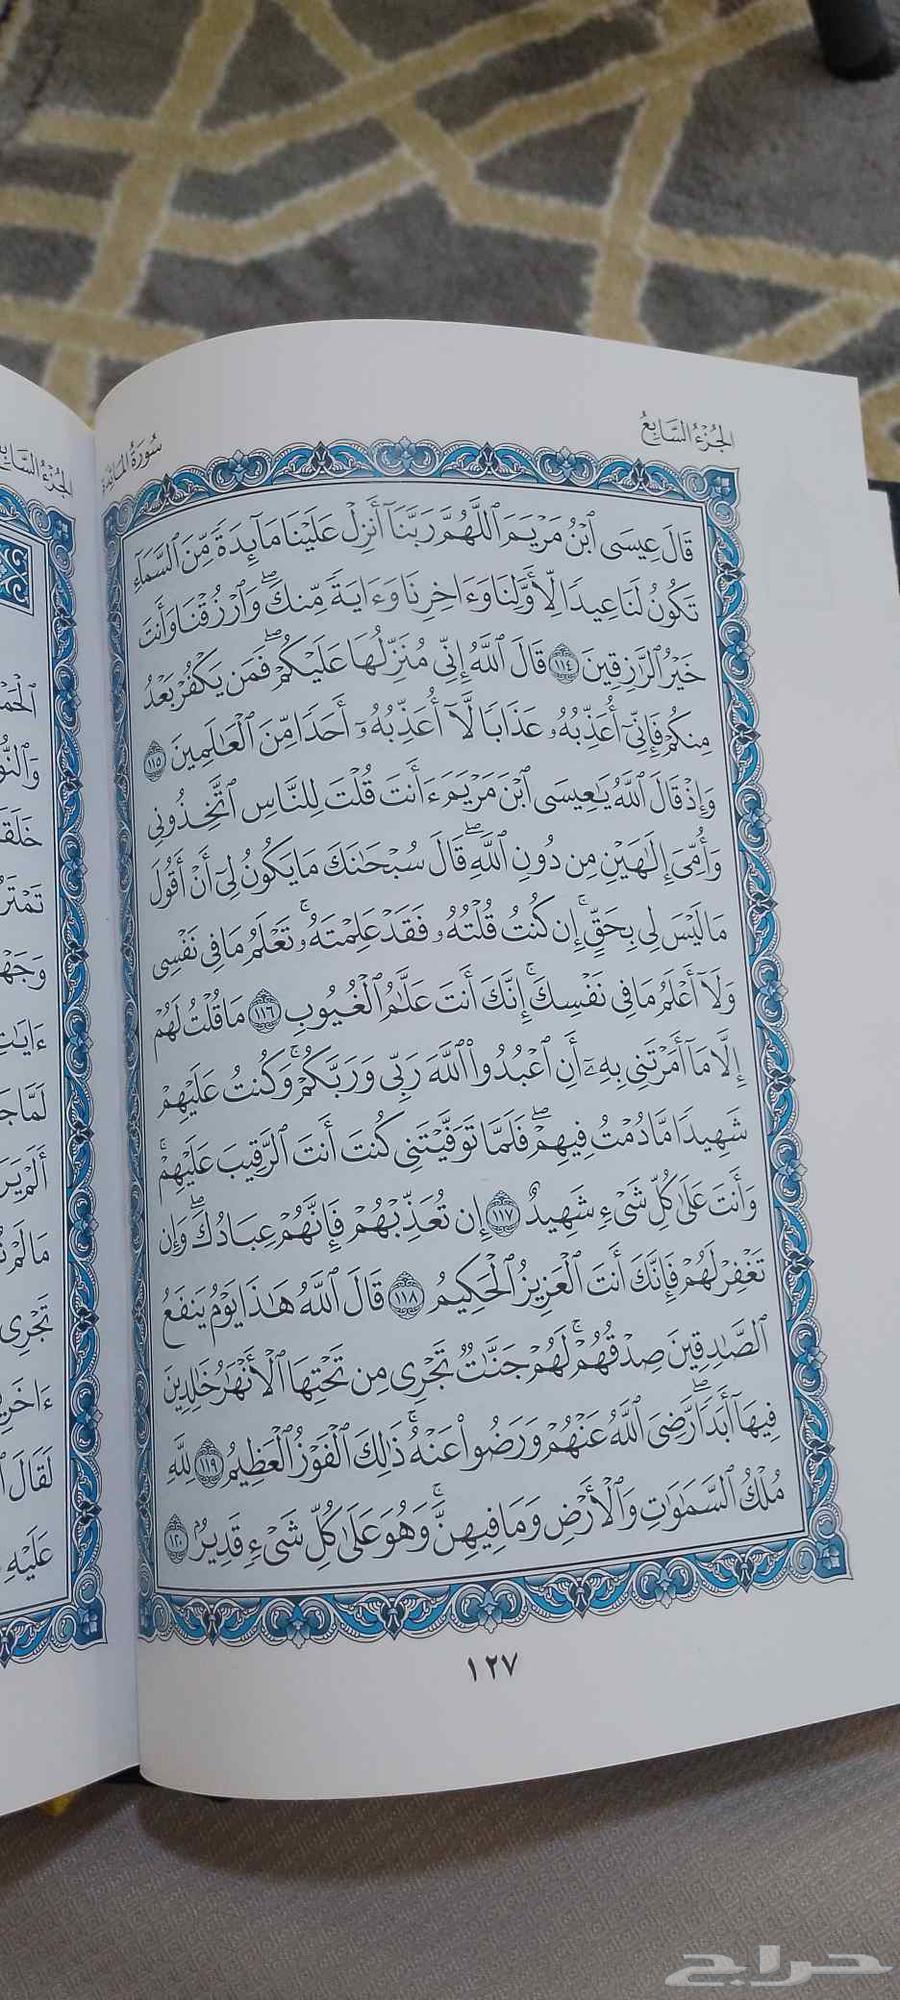 الجُزْءُ السَّابِعُ
سُورَةُ المَائِدَةِ
قَالَ عِيسَى ٱبْنُ مَرْيَمَ ٱللَّهُمَّ رَبَّنَآ أَنزِلْ عَلَيْنَا مَآئِدَةً مِّنَ ٱلسَّمَآءِ
تَكُونُ لَنَا عِيدًا لِّأَوَّلِنَا وَءَاخِرِنَا وَءَايَةً مِّنكَۖ وَٱرْزُقْنَا وَأَنتَ
خَيْرُ ٱلرَّٰزِقِينَ ١١٤ قَالَ ٱللَّهُ إِنِّى مُنَزِّلُهَا عَلَيْكُمْۖ فَمَن يَكْفُرْ بَعْدُ
مِنكُمْ فَإِنِّىٓ أُعَذِّبُهُۥ عَذَابًا لَّآ أُعَذِّبُهُۥٓ أَحَدًا مِّنَ ٱلْعَٰلَمِينَ ١١٥
وَإِذْ قَالَ ٱللَّهُ يَٰعِيسَى ٱبْنَ مَرْيَمَ ءَأَنتَ قُلْتَ لِلنَّاسِ ٱتَّخِذُونِى
وَأُمِّىَ إِلَٰهَيْنِ مِن دُونِ ٱللَّهِۖ قَالَ سُبْحَٰنَكَ مَا يَكُونُ لِىٓ أَنْ أَقُولَ
مَا لَيْسَ لِى بِحَقٍّۚ إِن كُنتُ قُلْتُهُۥ فَقَدْ عَلِمْتَهُۥۚ تَعْلَمُ مَا فِى نَفْسِى
وَلَآ أَعْلَمُ مَا فِى نَفْسِكَۚ إِنَّكَ أَنتَ عَلَّٰمُ ٱلْغُيُوبِ ١١٦ مَا قُلْتُ لَهُمْ
إِلَّا مَآ أَمَرْتَنِى بِهِۦٓ أَنِ ٱعْبُدُوا۟ ٱللَّهَ رَبِّى وَرَبَّكُمْۚ وَكُنتُ عَلَيْهِمْ
شَهِيدًا مَّا دُمْتُ فِيهِمْۖ فَلَمَّا تَوَفَّيْتَنِى كُنتَ أَنتَ ٱلرَّقِيبَ عَلَيْهِمْۚ
وَأَنتَ عَلَىٰ كُلِّ شَىْءٍ شَهِيدٌ ١١٧ إِن تُعَذِّبْهُمْ فَإِنَّهُمْ عِبَادُكَۖ وَإِن
تَغْفِرْ لَهُمْ فَإِنَّكَ أَنتَ ٱلْعَزِيزُ ٱلْحَكِيمُ ١١٨ قَالَ ٱللَّهُ هَٰذَا يَوْمُ يَنفَعُ
ٱلصَّٰدِقِينَ صِدْقُهُمْۚ لَهُمْ جَنَّٰتٌ تَجْرِى مِن تَحْتِهَا ٱلْأَنْهَٰرُ خَٰلِدِينَ
فِيهَآ أَبَدًاۖ رَّضِىَ ٱللَّهُ عَنْهُمْ وَرَضُوا۟ عَنْهُۚ ذَٰلِكَ ٱلْفَوْزُ ٱلْعَظِيمُ ١١٩ لِلَّهِ
مُلْكُ ٱلسَّمَٰوَٰتِ وَٱلْأَرْضِ وَمَا فِيهِنَّۚ وَهُوَ عَلَىٰ كُلِّ شَىْءٍ قَدِيرٌۢ ١٢٠
١٢٧
خَلَقَ
ءَايَٰتِ
أَلَمْ يَرَ
تَجْرِى
عَلَيْهِ
حراج